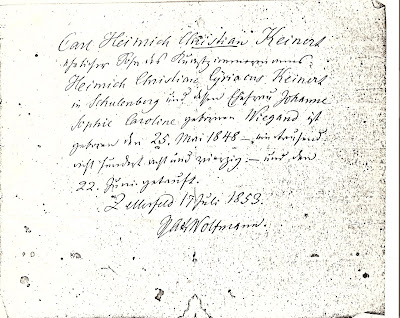 Carl Heinrich Christian Keinert
ehelicher Sohn des Kunstzimmermanns
Heinrich Christian Cyriacus Keinert
in Schulenberg und dessen Ehefrau Johanne
Sophie Caroline geborenen Wiegand ist
geboren den 25. Mai 1848 – ein tausend
acht hundert acht und vierzig – und den
22. Juni getauft.
Zellerfeld 17 Juli 1853.
Wolfmann.